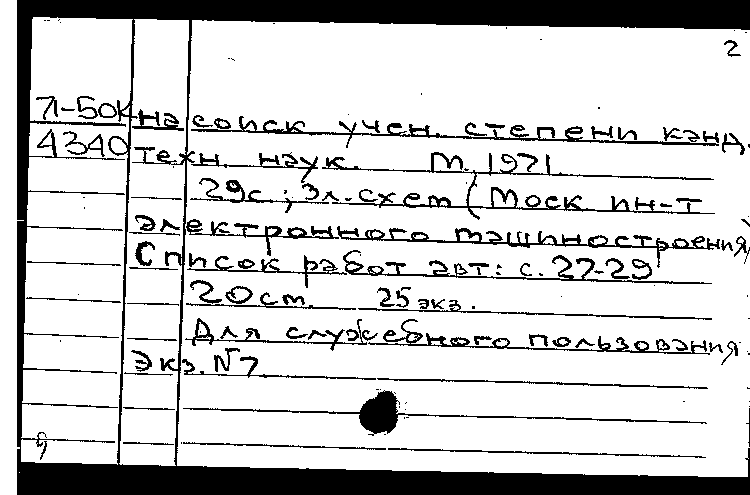 2
71-50К на соиск. учен. степени канд.
4340 техн. наук. М., 1971.
29с.; Эл.схем (Моск ин-т
электронного машиностроения)
Список работ авт: с. 27-29
20см. 25 экз.
Для служебного пользования.
Экз. №7